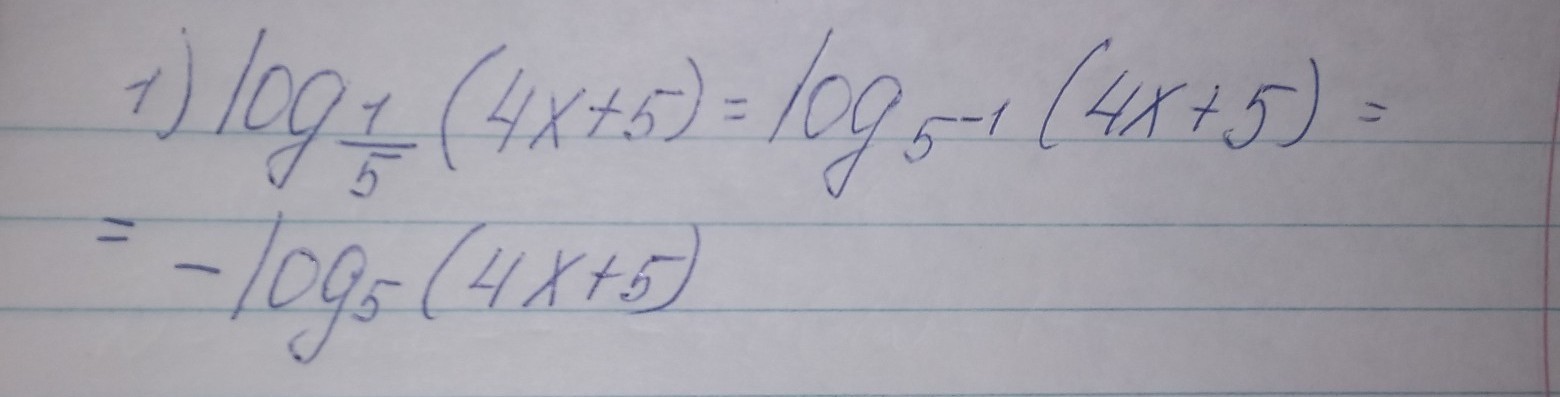 1) log_{1/5} (4x+5) = log_{5^{-1}} (4x+5) =
= -log_5 (4x+5)